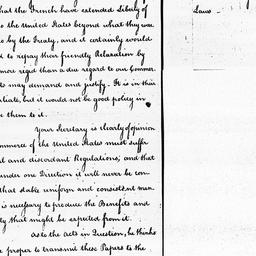 that the French have extended Liberty of
to the United States beyond what they were
to by the Treaty, and it certainly would
d to repay their friendly Relaxation by
more rigid than a due regard to our Commer
ts may demand and justify. It is in their
aliate, but it would not be good policy in
e them to it.
Your Secretary is clearly of opinion
ommerce of the United States must suffer
l and discordant Regulations; and that
under one Direction it will never be con
that stable uniform and consistent man
is necessary to produce the Benefits and
ty that might be expected from it.
As to the Acts in Question, he thinks
e proper to transmit these Papers to the
Laws